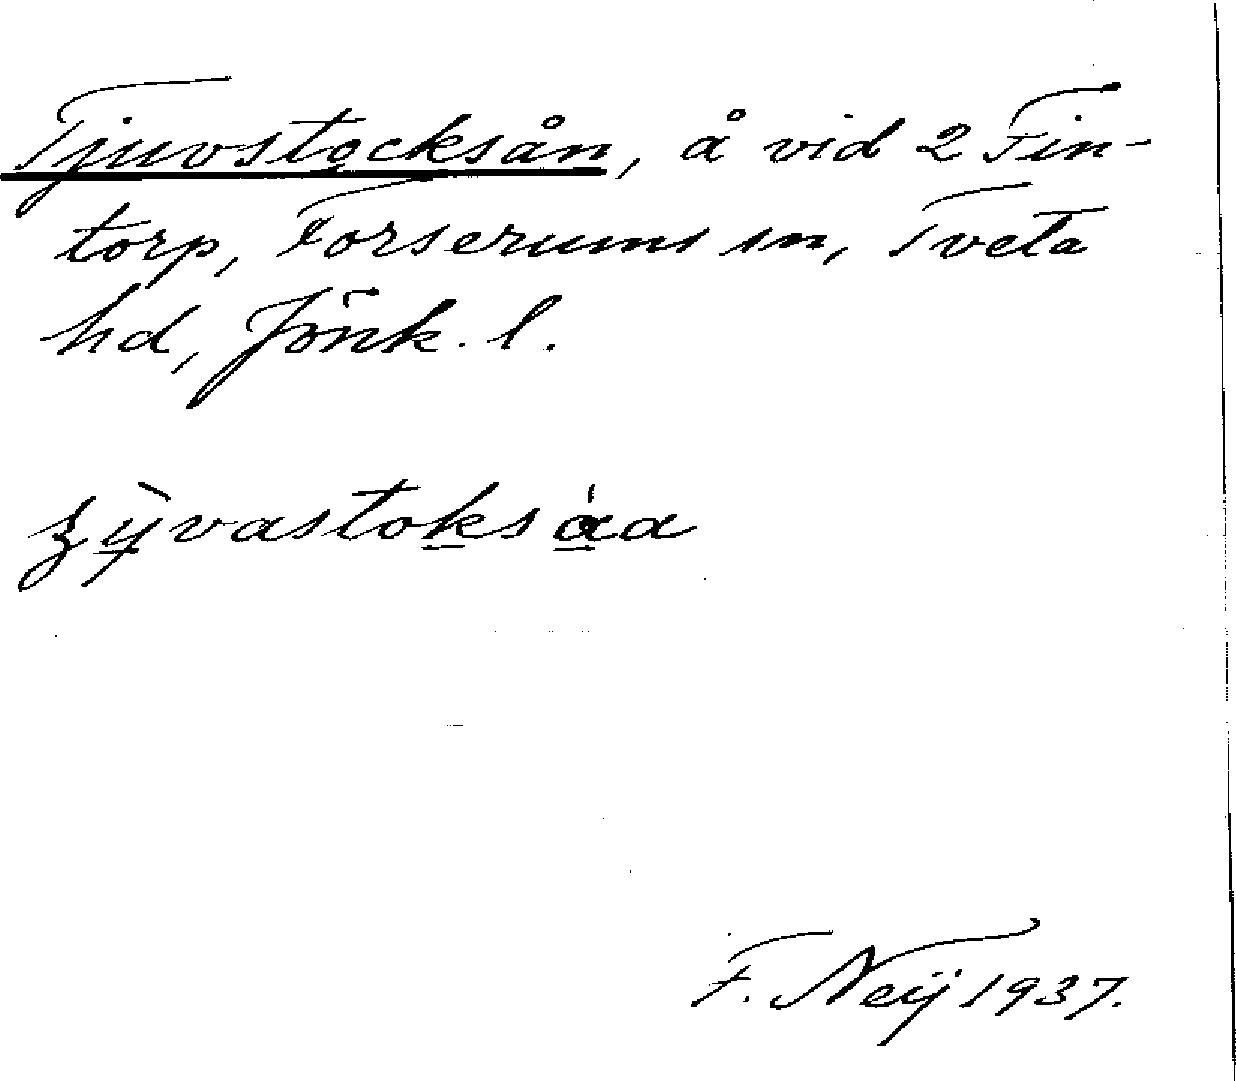 Tjuvstocksån, å vid 2 Fin-
torp, Forserums sn, Tveta
hd, Jönk. l.
ʒỳvastoksáa
F. Neij 1937.